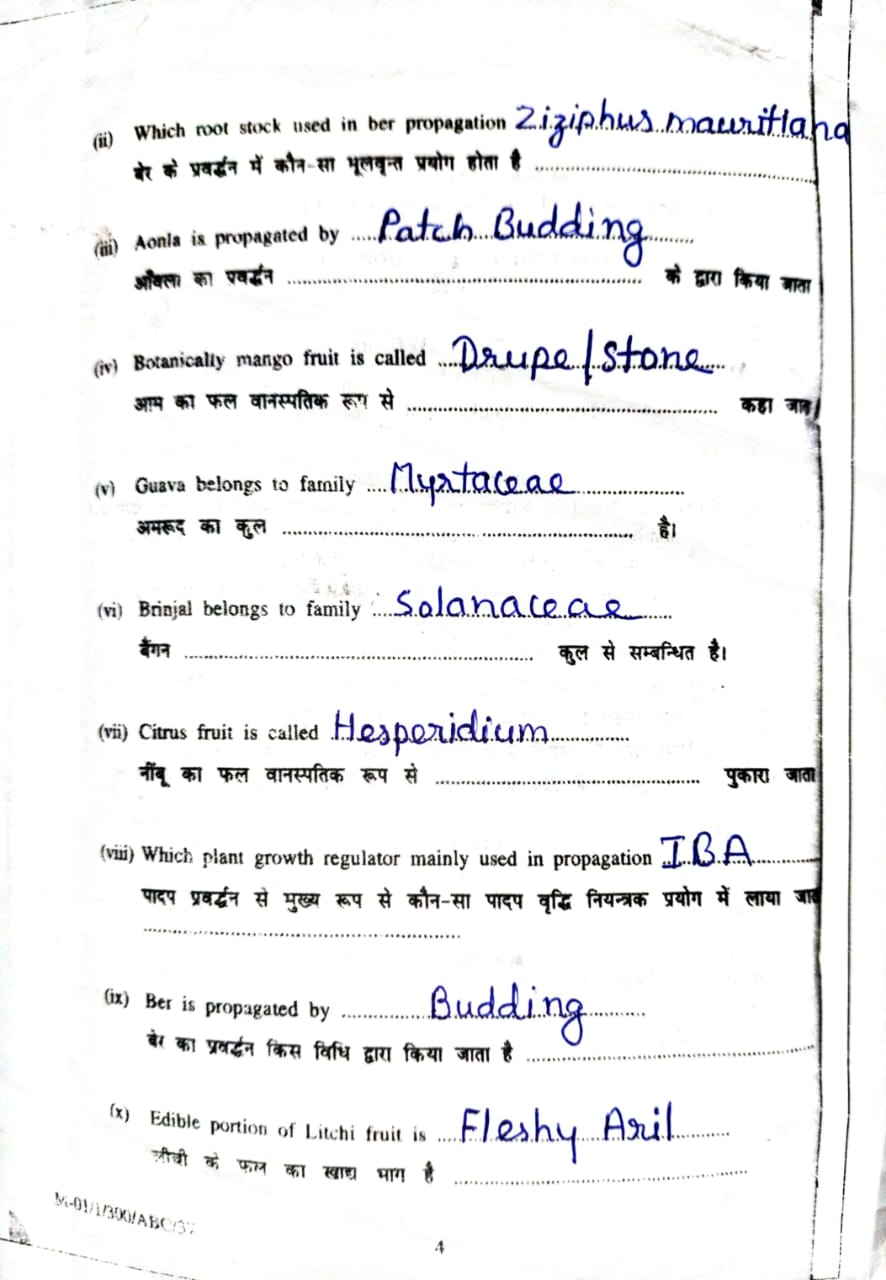 (ii) Which root stock used in ber propagation Ziziphus mauritiana
बेर के प्रवर्द्धन में कौन-सा भूलवृन्त प्रयोग होता है ..............................
(iii) Aonla is propagated by ..... Patch Budding ..........
आँवला का प्रवर्द्धन .............................. के द्वारा किया जाता
(iv) Botanically mango fruit is called .... Drupe/Stone ....
आम का फल वानस्पतिक रूप से .............................. कहा जात
(v) Guava belongs to family .... Myrtaceae ....................
अमरूद का कुल .............................. है।
(vi) Brinjal belongs to family .... Solanaceae ........
बैंगन .............................. कुल से सम्बन्धित है।
(vii) Citrus fruit is called Hesperidium ...............
नींबू का फल वानस्पतिक रूप से .............................. पुकारा जाता
(viii) Which plant growth regulator mainly used in propagation IBA ............
पादप प्रवर्द्धन से मुख्य रूप से कौन-सा पादप वृद्धि नियन्त्रक प्रयोग में लाया जात
..............................
(ix) Ber is propagated by ............... Budding ............
बेर का प्रवर्द्धन किस विधि द्वारा किया जाता है ..............................
(x) Edible portion of Litchi fruit is .... Fleshy Aril ............
लीची के फल का खाद्य भाग है ..............................
M-01/1/300/ABC/37
4